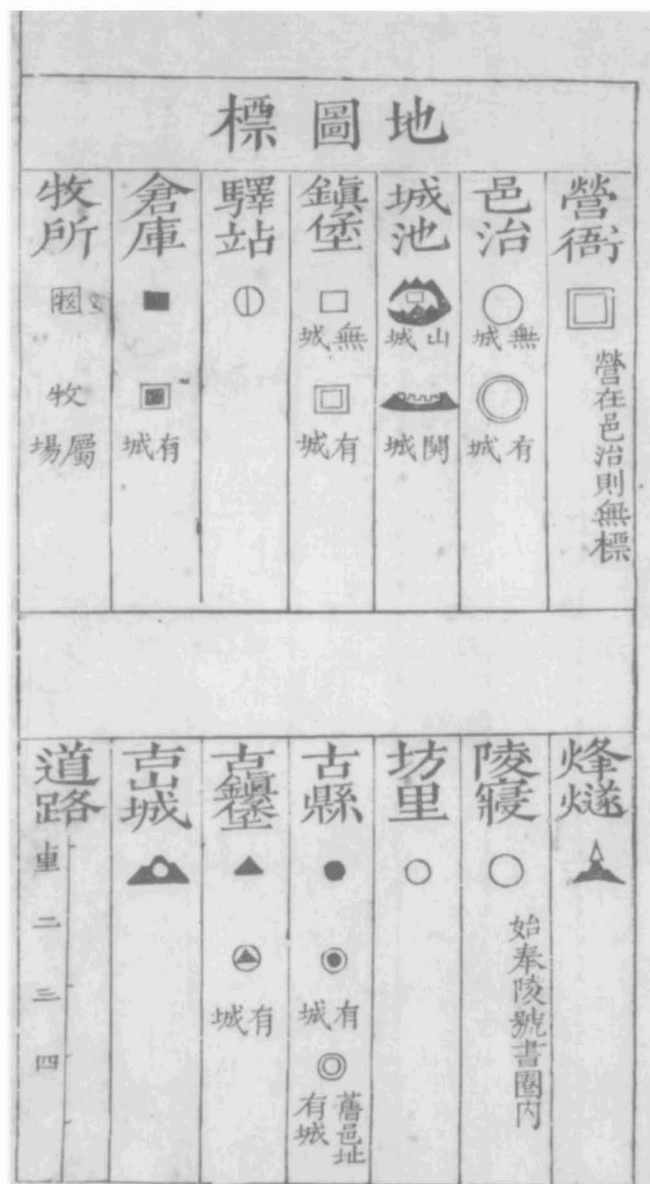 地圖標
營衙
營在邑治則無標
邑治
無城
有城
城池
山城
関城
鎭堡
無城
有城
驛站
倉庫
有城
牧所
牧
牧
屬場
烽燧
陵寢
始奉陵號書圈内
坊里
古縣
有城
舊邑址
有城
古鎭堡
有城
古山城
道路
二
三
四